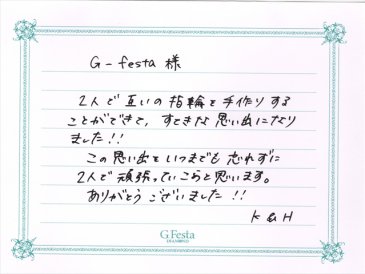 G-festa 様
2人で互いの指輪を手作りする
ことができて、すてきな思い出になり
ました!!
この思い出をいつまでも忘れずに
2人で頑張っていこうと思います。
ありがとうございました!!
K & H
G.Festa
DIAMOND